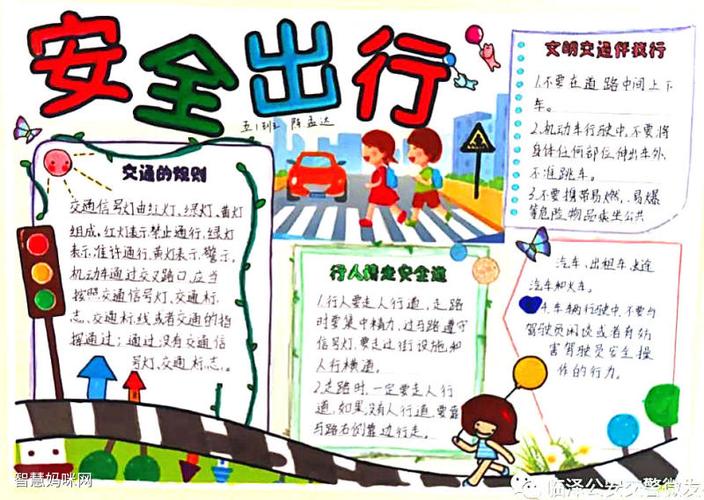 安全出行
五1班 陈孟达
交通的规则
交通信号灯由红灯、绿灯、黄灯
组成，红灯表示禁止通行，绿灯
表示准许通行，黄灯表示警示，
机动车通过交叉路口，应当
按照交通信号灯、交通标
志、交通标线或者交通的指
挥通过；通过没有交通信
号灯、交通标志。
行人请走安全道
1.行人要走人行道，走路
时要集中精力，过马路遵守
信号灯，要走过街设施和
人行横道。
2.走路时，一定要走人行
道，如果没有人行道，要靠
马路右侧靠边行走。
文明交通伴我行
1.不要在道路中间上下
车。
2.机动车行驶中，不要将
身体任何部位伸出车外，
不准跳车。
3.不要携带易燃、易爆
等危险物品乘坐公共
汽车、出租车、长途
汽车和火车。
4.车辆行驶中，不要与
驾驶员闲谈或者有妨
害驾驶员安全操
作的行为。
智慧妈咪网
临泽公安交警微发